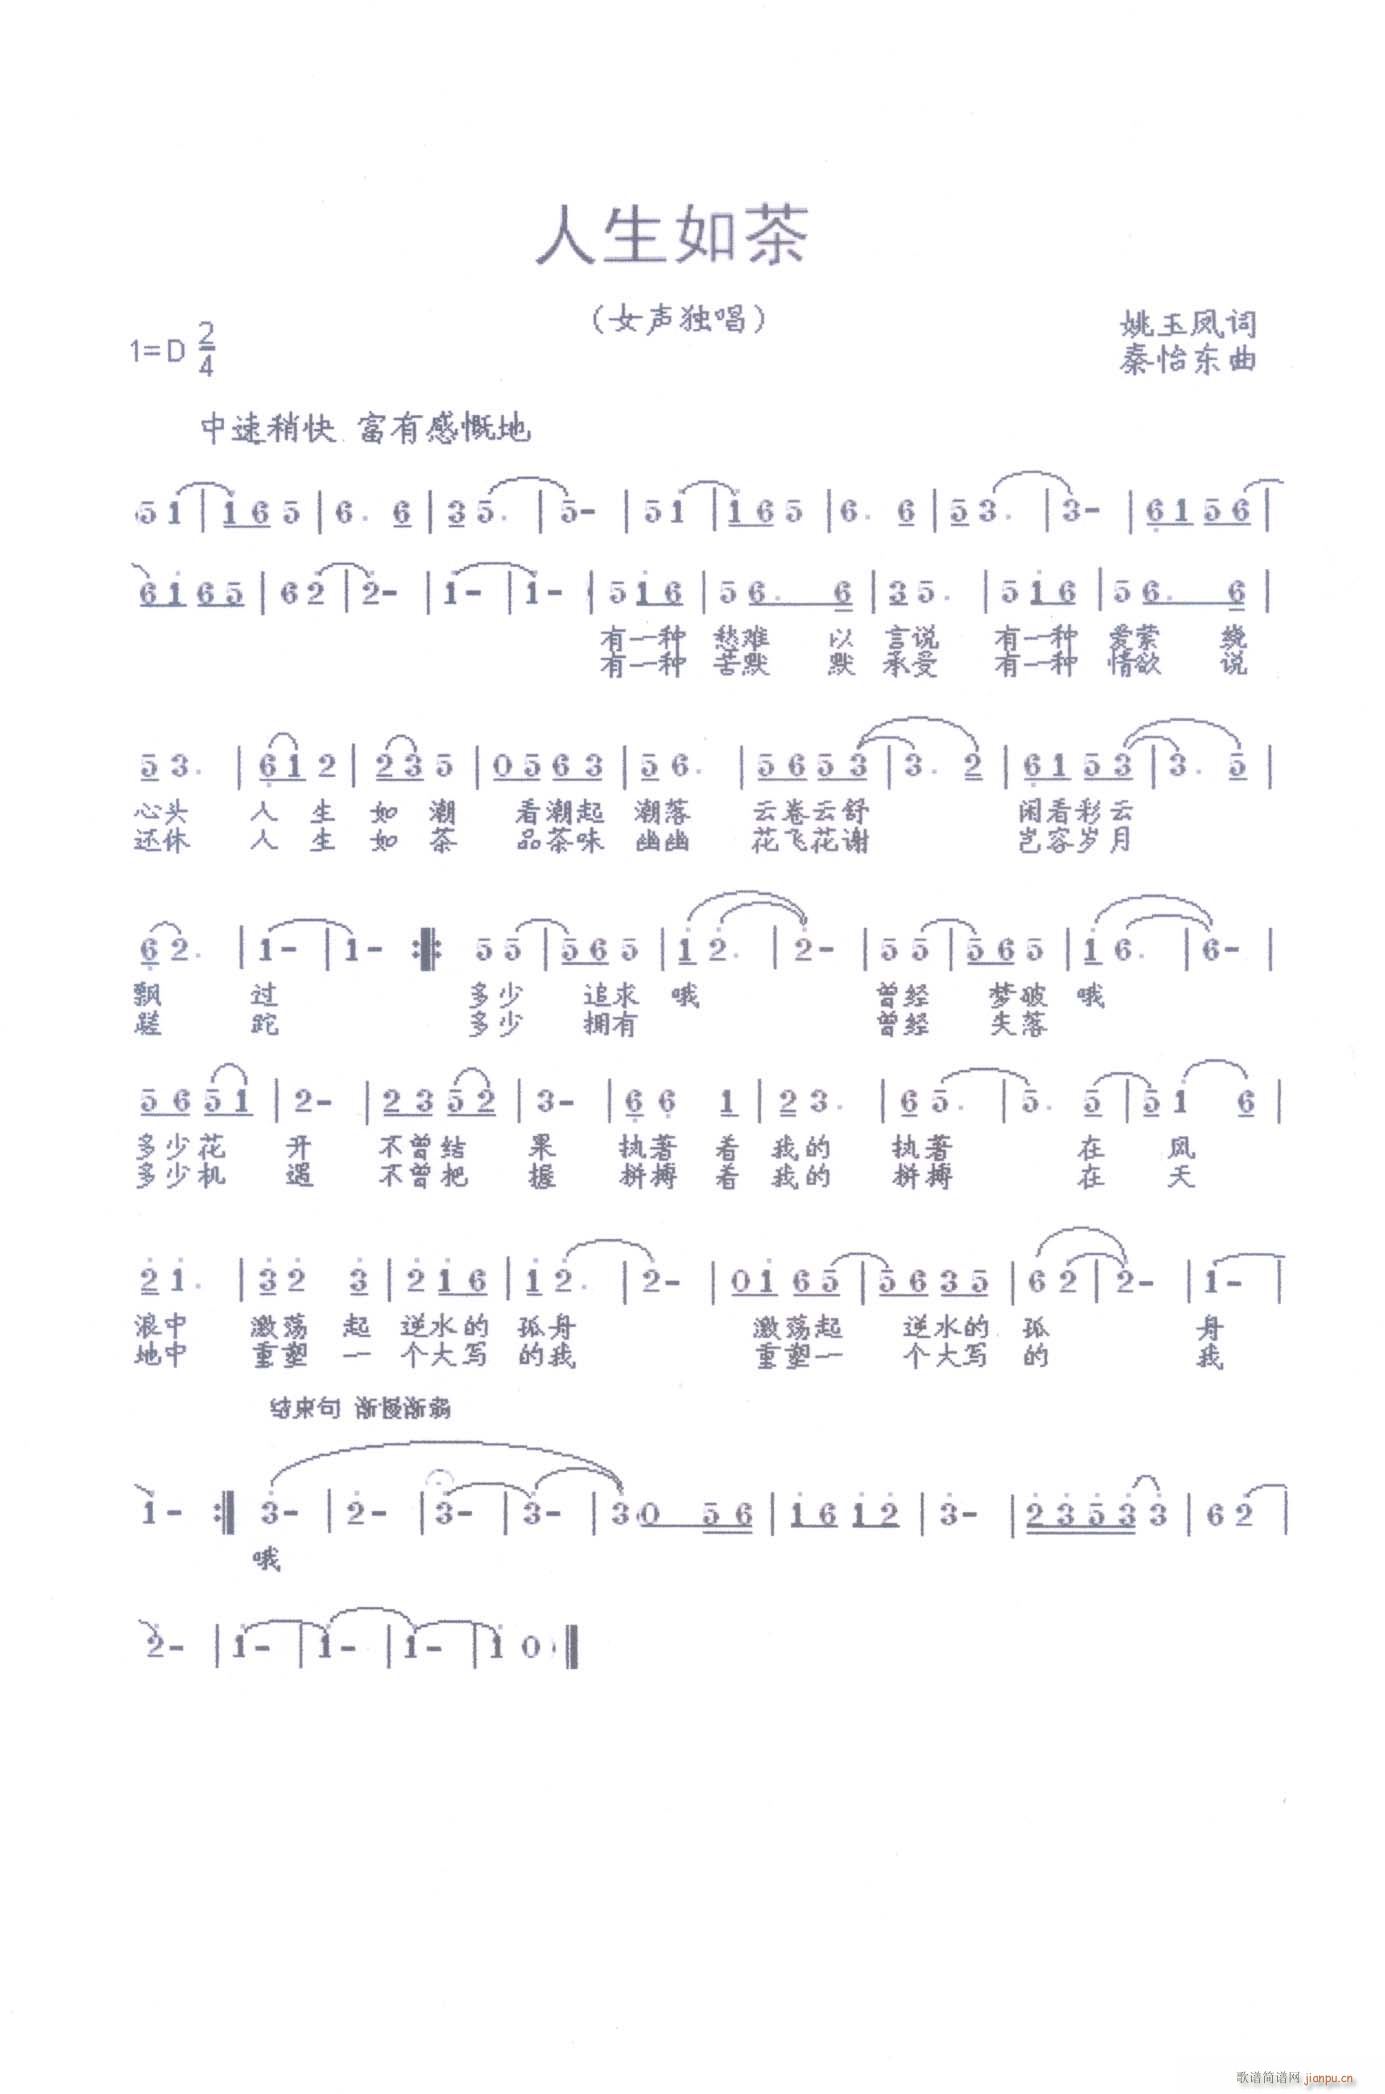 人生如茶
(女声独唱)
1=D 2/4
姚玉凤词
秦怡东曲
中速稍快 富有感慨地
(5 1 | 1 6 5 | 6. 6 | 3 5. | 5 - | 5 1 | 1 6 5 | 6. 6 | 5 3. | 3 - | 6 1 5 6 |
6 1 6 5 | 6 2 | 2 - | 1 - | 1 - | 5 1 6 | 5 6. 6 | 3 5. | 5 1 6 | 5 6. 6 |
有一种 愁难 以 言说 有一种 爱萦 绕
有一种 苦默 默 承受 有一种 情欲 说
5 3. | 6 1 2 | 2 3 5 | 0 5 6 3 | 5 6. | 5 6 5 3 | 3. 2 | 6 1 5 3 | 3. 5 |
心头 人 生 如 潮 看潮起 潮落 云卷云舒 闲看彩云
还休 人 生 如 茶 品茶味 幽幽 花飞花谢 岂容岁月
6 2. | 1 - | 1 - :||: 5 5 | 5 6 5 | 1 2. | 2 - | 5 5 | 5 6 5 | 1 6. | 6 - |
飘 过 多少 追求 哦 曾经 梦破 哦
蹉 跎 多少 拥有 曾经 失落
5 6 5 1 | 2 - | 2 3 5 2 | 3 - | 6 6 1 | 2 3. | 6 5. | 5. 5 | 5 1 6 |
多少花 开 不曾结 果 执著 着 我的 执著 在 风
多少机 遇 不曾把 握 拼搏 着 我的 拼搏 在 天
2 1. | 3 2 3 | 2 1 6 | 1 2. | 2 - | 0 1 6 5 | 5 6 3 5 | 6 2 | 2 - | 1 - |
浪中 激荡 起 逆水的 孤舟 激荡起 逆水的 孤 舟
地中 重塑 一 个大写 的我 重塑一 个大写 的 我
结束句 渐慢渐弱
1 - :|| 3 - | 2 - | 3 - | 3 - | 3 (0 5 6 | 1 6 1 2 | 3 - | 2 3 5 3 3 | 6 2 |
哦
2 - | 1 - | 1 - | 1 - | 1 0) ||
歌谱简谱网 jianpu.cn